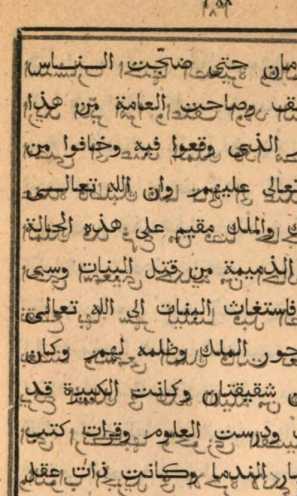 مان حتى ضجّت الناس
وصاحت العامة من هذا
الذي وقعوا فيه وخافوا من
تعالى عليهم وان الله تعالى
والملك مقيم على هذه الحالة
الذميمة من قتل البنات وسبى
فاستغاث البنات الى الله تعالى
جور الملك وظلمه لهم وكان
شقيقتان وكانت الكبيرة قد
ودرست العلوم وقرات كتب
الندما وكانت ذات عقد